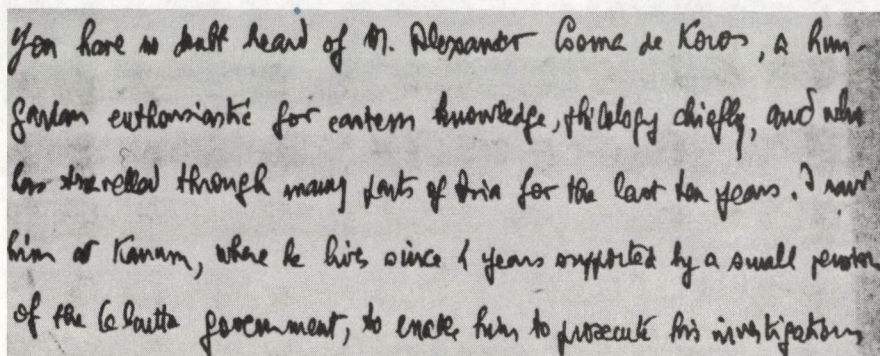 You have no doubt heard of M. Alexander Csoma de Koros, a hun-
garian enthousiastic for eastern knowledge, philology chiefly, and who
has travelled through many parts of Asia for the last ten years. I saw
him at Kanum, where he lives since 4 years supported by a small pension
of the Calcutta government, to enable him to prosecute his investigations